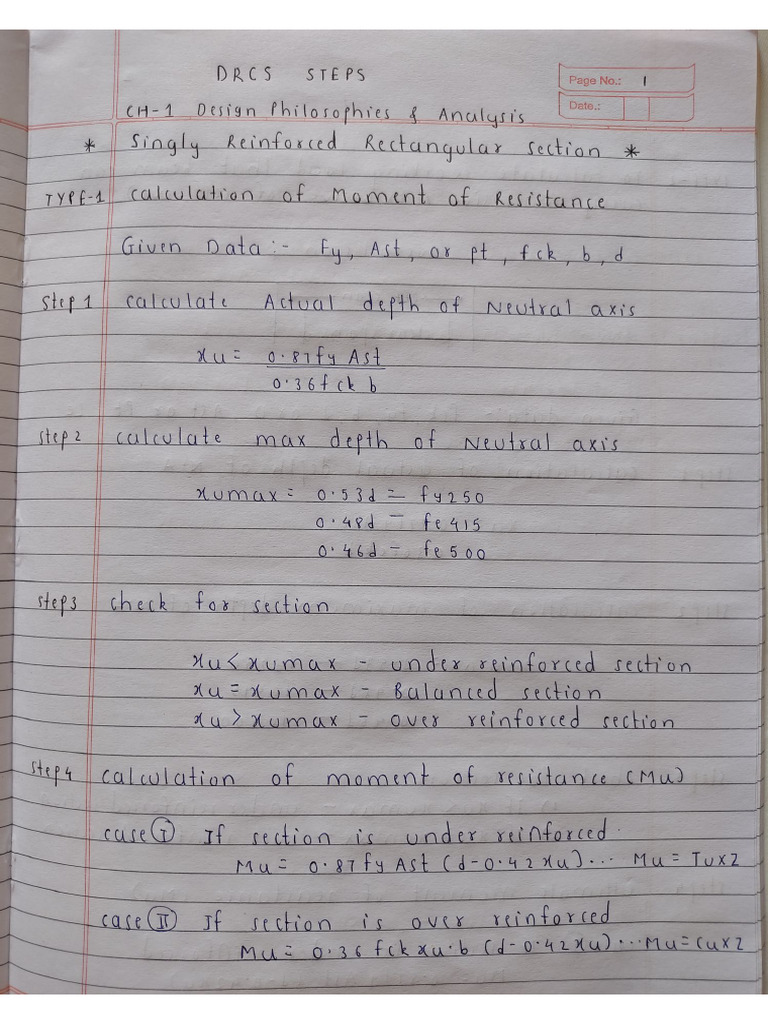 DRCS STEPS
Page No.: 1
Date.:
CH-1 Design Philosophies & Analysis
* Singly Reinforced Rectangular Section *
TYPE-1 Calculation of Moment of Resistance
Given Data:- Fy, Ast, or pt, fck, b, d
Step 1 Calculate Actual depth of Neutral axis
xu = 0.87fy Ast
0.36fck b
Step 2 Calculate max depth of Neutral axis
xumax = 0.53d = fy250
0.48d = fe415
0.46d = fe500
Step3 Check for section
xu < xumax - under reinforced section
xu = xumax - Balanced section
xu > xumax - over reinforced section
Step4 Calculation of moment of resistance (Mu)
case I If section is under reinforced.
Mu = 0.87fy Ast (d-0.42xu)... Mu = Tu×z
case II If section is over reinforced
Mu = 0.36 fck xu.b (d-0.42xu)...Mu=Cu×z